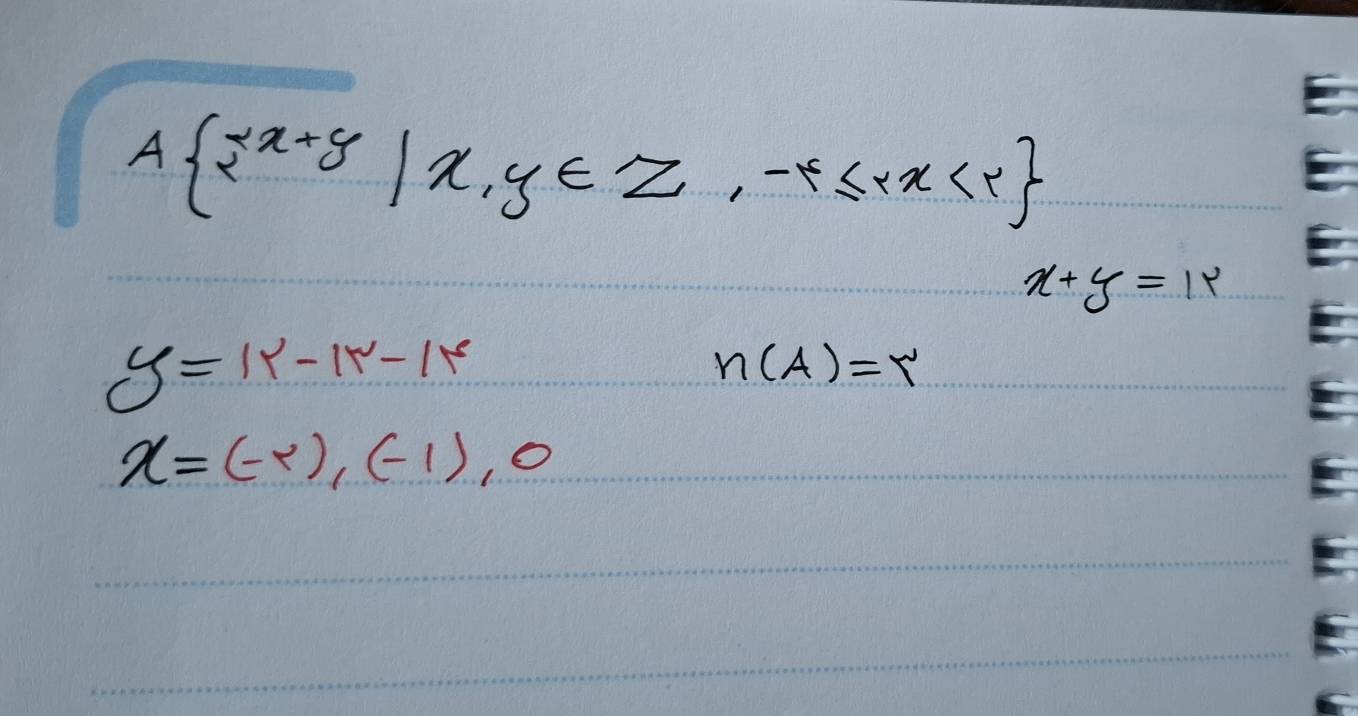 A{۲^۲x+y | x,y ∈ Z , -۴≤۲x<۲}
x+y=۱۲
y=۱۲-۱۳-۱۴ n(A)=۳
x=(-۲),(-۱),0